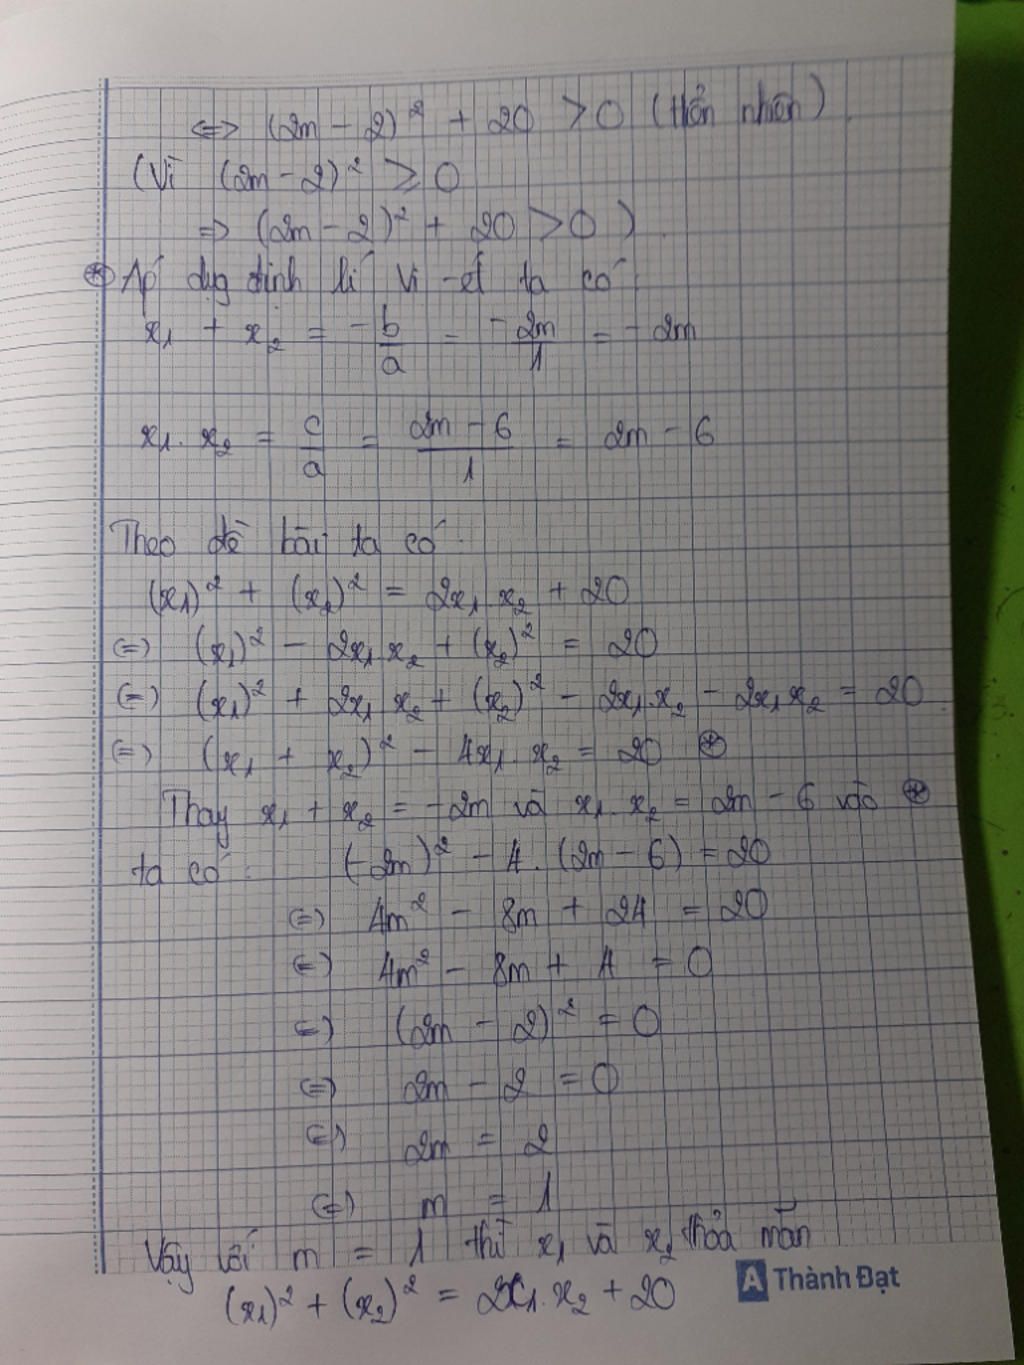 <=> (2m - 2)² + 20 > 0 (hiển nhiên)
(Vì (2m - 2)² ≥ 0
=> (2m - 2)² + 20 > 0)
⊛ Áp dụg định lí Vi-ét ta có
x₁ + x₂ = -b/a = -2m/1 = -2m
x₁.x₂ = c/a = (2m - 6)/1 = 2m - 6
Theo đề bài ta có:
(x₁)² + (x₂)² = 2x₁.x₂ + 20
(=) (x₁)² - 2x₁.x₂ + (x₂)² = 20
(=) (x₁)² + 2x₁x₂ + (x₂)² - 2x₁.x₂ - 2x₁x₂ = 20
(=) (x₁ + x₂)² - 4x₁.x₂ = 20 ⊛
Thay x₁ + x₂ = -2m và x₁.x₂ = 2m - 6 vào ⊛
ta có: (-2m)² - 4.(2m - 6) = 20
(=) 4m² - 8m + 24 = 20
(=) 4m² - 8m + 4 = 0
(=) (2m - 2)² = 0
(=) 2m - 2 = 0
(=) 2m = 2
(=) m = 1
Vậy với m = 1 thì x₁ và x₂ thỏa mãn
(x₁)² + (x₂)² = 2x₁.x₂ + 20
A Thành Đạt